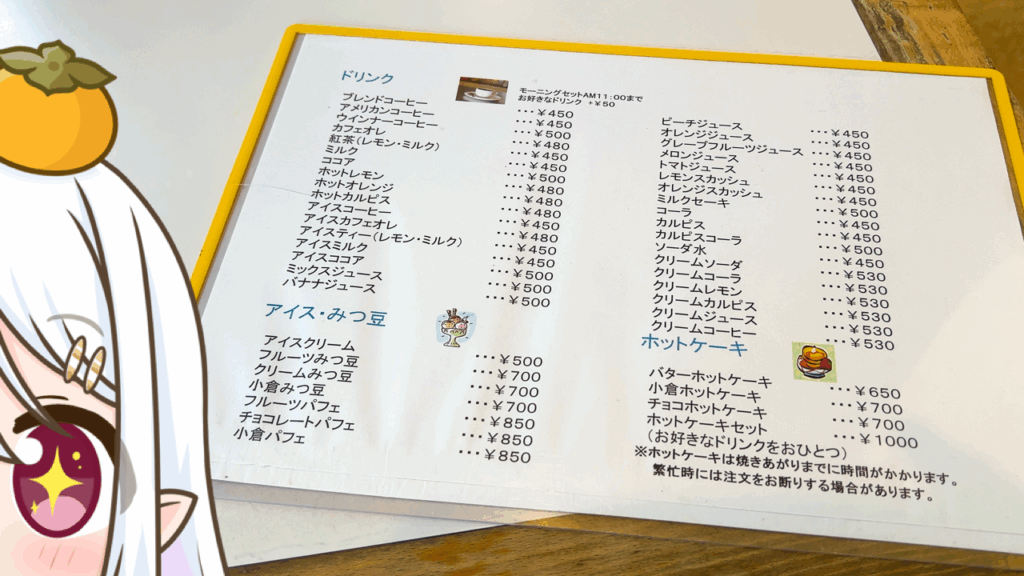 ドリンク
モーニングセットAM11:00まで
お好きなドリンク +¥50
ブレンドコーヒー ･･･¥450
アメリカンコーヒー ･･･¥450
ウインナーコーヒー ･･･¥500
カフェオレ ･･･¥480
紅茶(レモン・ミルク) ･･･¥450
ミルク ･･･¥450
ココア ･･･¥500
ホットレモン ･･･¥480
ホットオレンジ ･･･¥480
ホットカルピス ･･･¥480
アイスコーヒー ･･･¥450
アイスカフェオレ ･･･¥480
アイスティー(レモン・ミルク) ･･･¥450
アイスミルク ･･･¥450
アイスココア ･･･¥500
ミックスジュース ･･･¥500
バナナジュース ･･･¥500
アイス・みつ豆
アイスクリーム ･･･¥500
フルーツみつ豆 ･･･¥700
クリームみつ豆 ･･･¥700
小倉みつ豆 ･･･¥700
フルーツパフェ ･･･¥850
チョコレートパフェ ･･･¥850
小倉パフェ ･･･¥850
ピーチジュース ･･･¥450
オレンジジュース ･･･¥450
グレープフルーツジュース ･･･¥450
メロンジュース ･･･¥450
トマトジュース ･･･¥450
レモンスカッシュ ･･･¥450
オレンジスカッシュ ･･･¥450
ミルクセーキ ･･･¥500
コーラ ･･･¥450
カルピス ･･･¥450
カルピスコーラ ･･･¥500
ソーダ水 ･･･¥450
クリームソーダ ･･･¥530
クリームコーラ ･･･¥530
クリームレモン ･･･¥530
クリームカルピス ･･･¥530
クリームジュース ･･･¥530
クリームコーヒー ･･･¥530
ホットケーキ
バターホットケーキ ･･･¥650
小倉ホットケーキ ･･･¥700
チョコホットケーキ ･･･¥700
ホットケーキセット ･･･¥1000
(お好きなドリンクをおひとつ)
※ホットケーキは焼きあがりまでに時間がかかります。
繁忙時には注文をお断りする場合があります。